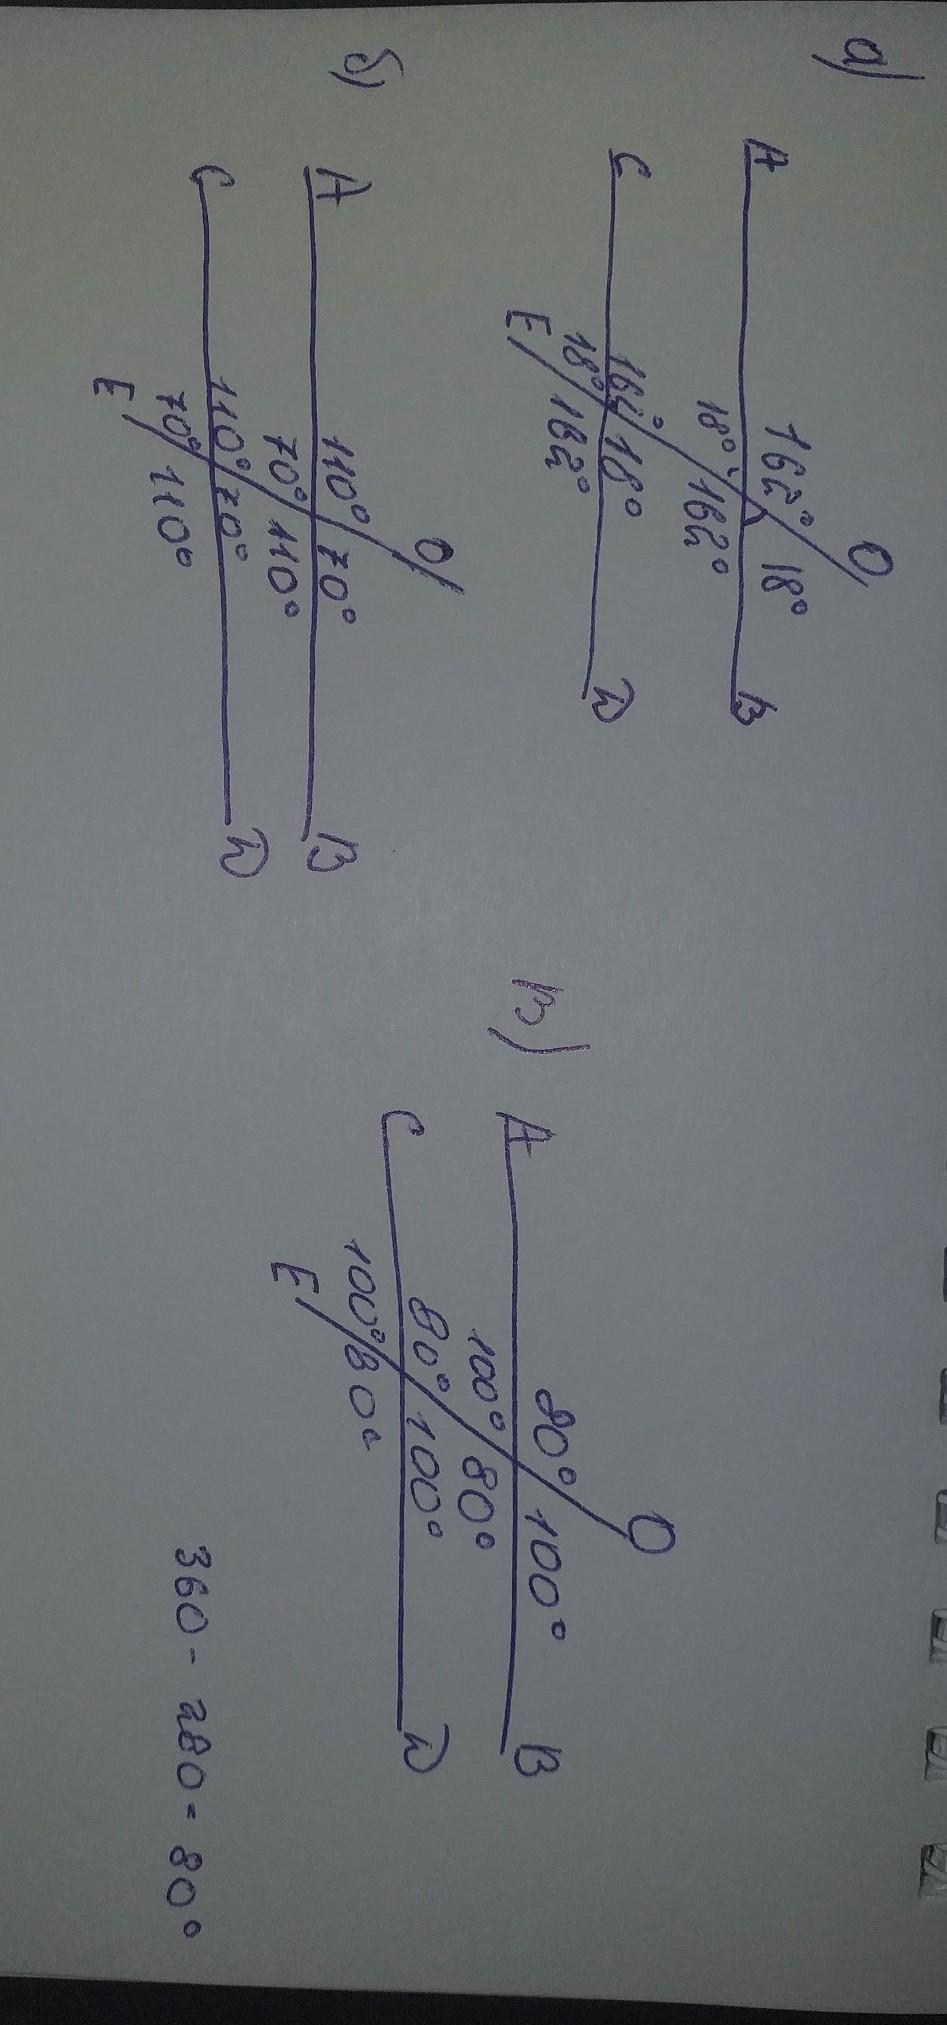 а)
O
162° 18°
A B
18° 162°
162° 18°
C D
18° 162°
E
б)
O
110° 70°
A B
70° 110°
110° 70°
C D
70° 110°
E
в)
O
80° 100°
A B
100° 80°
80° 100°
C D
100° 80°
E
360 - 280 = 80°